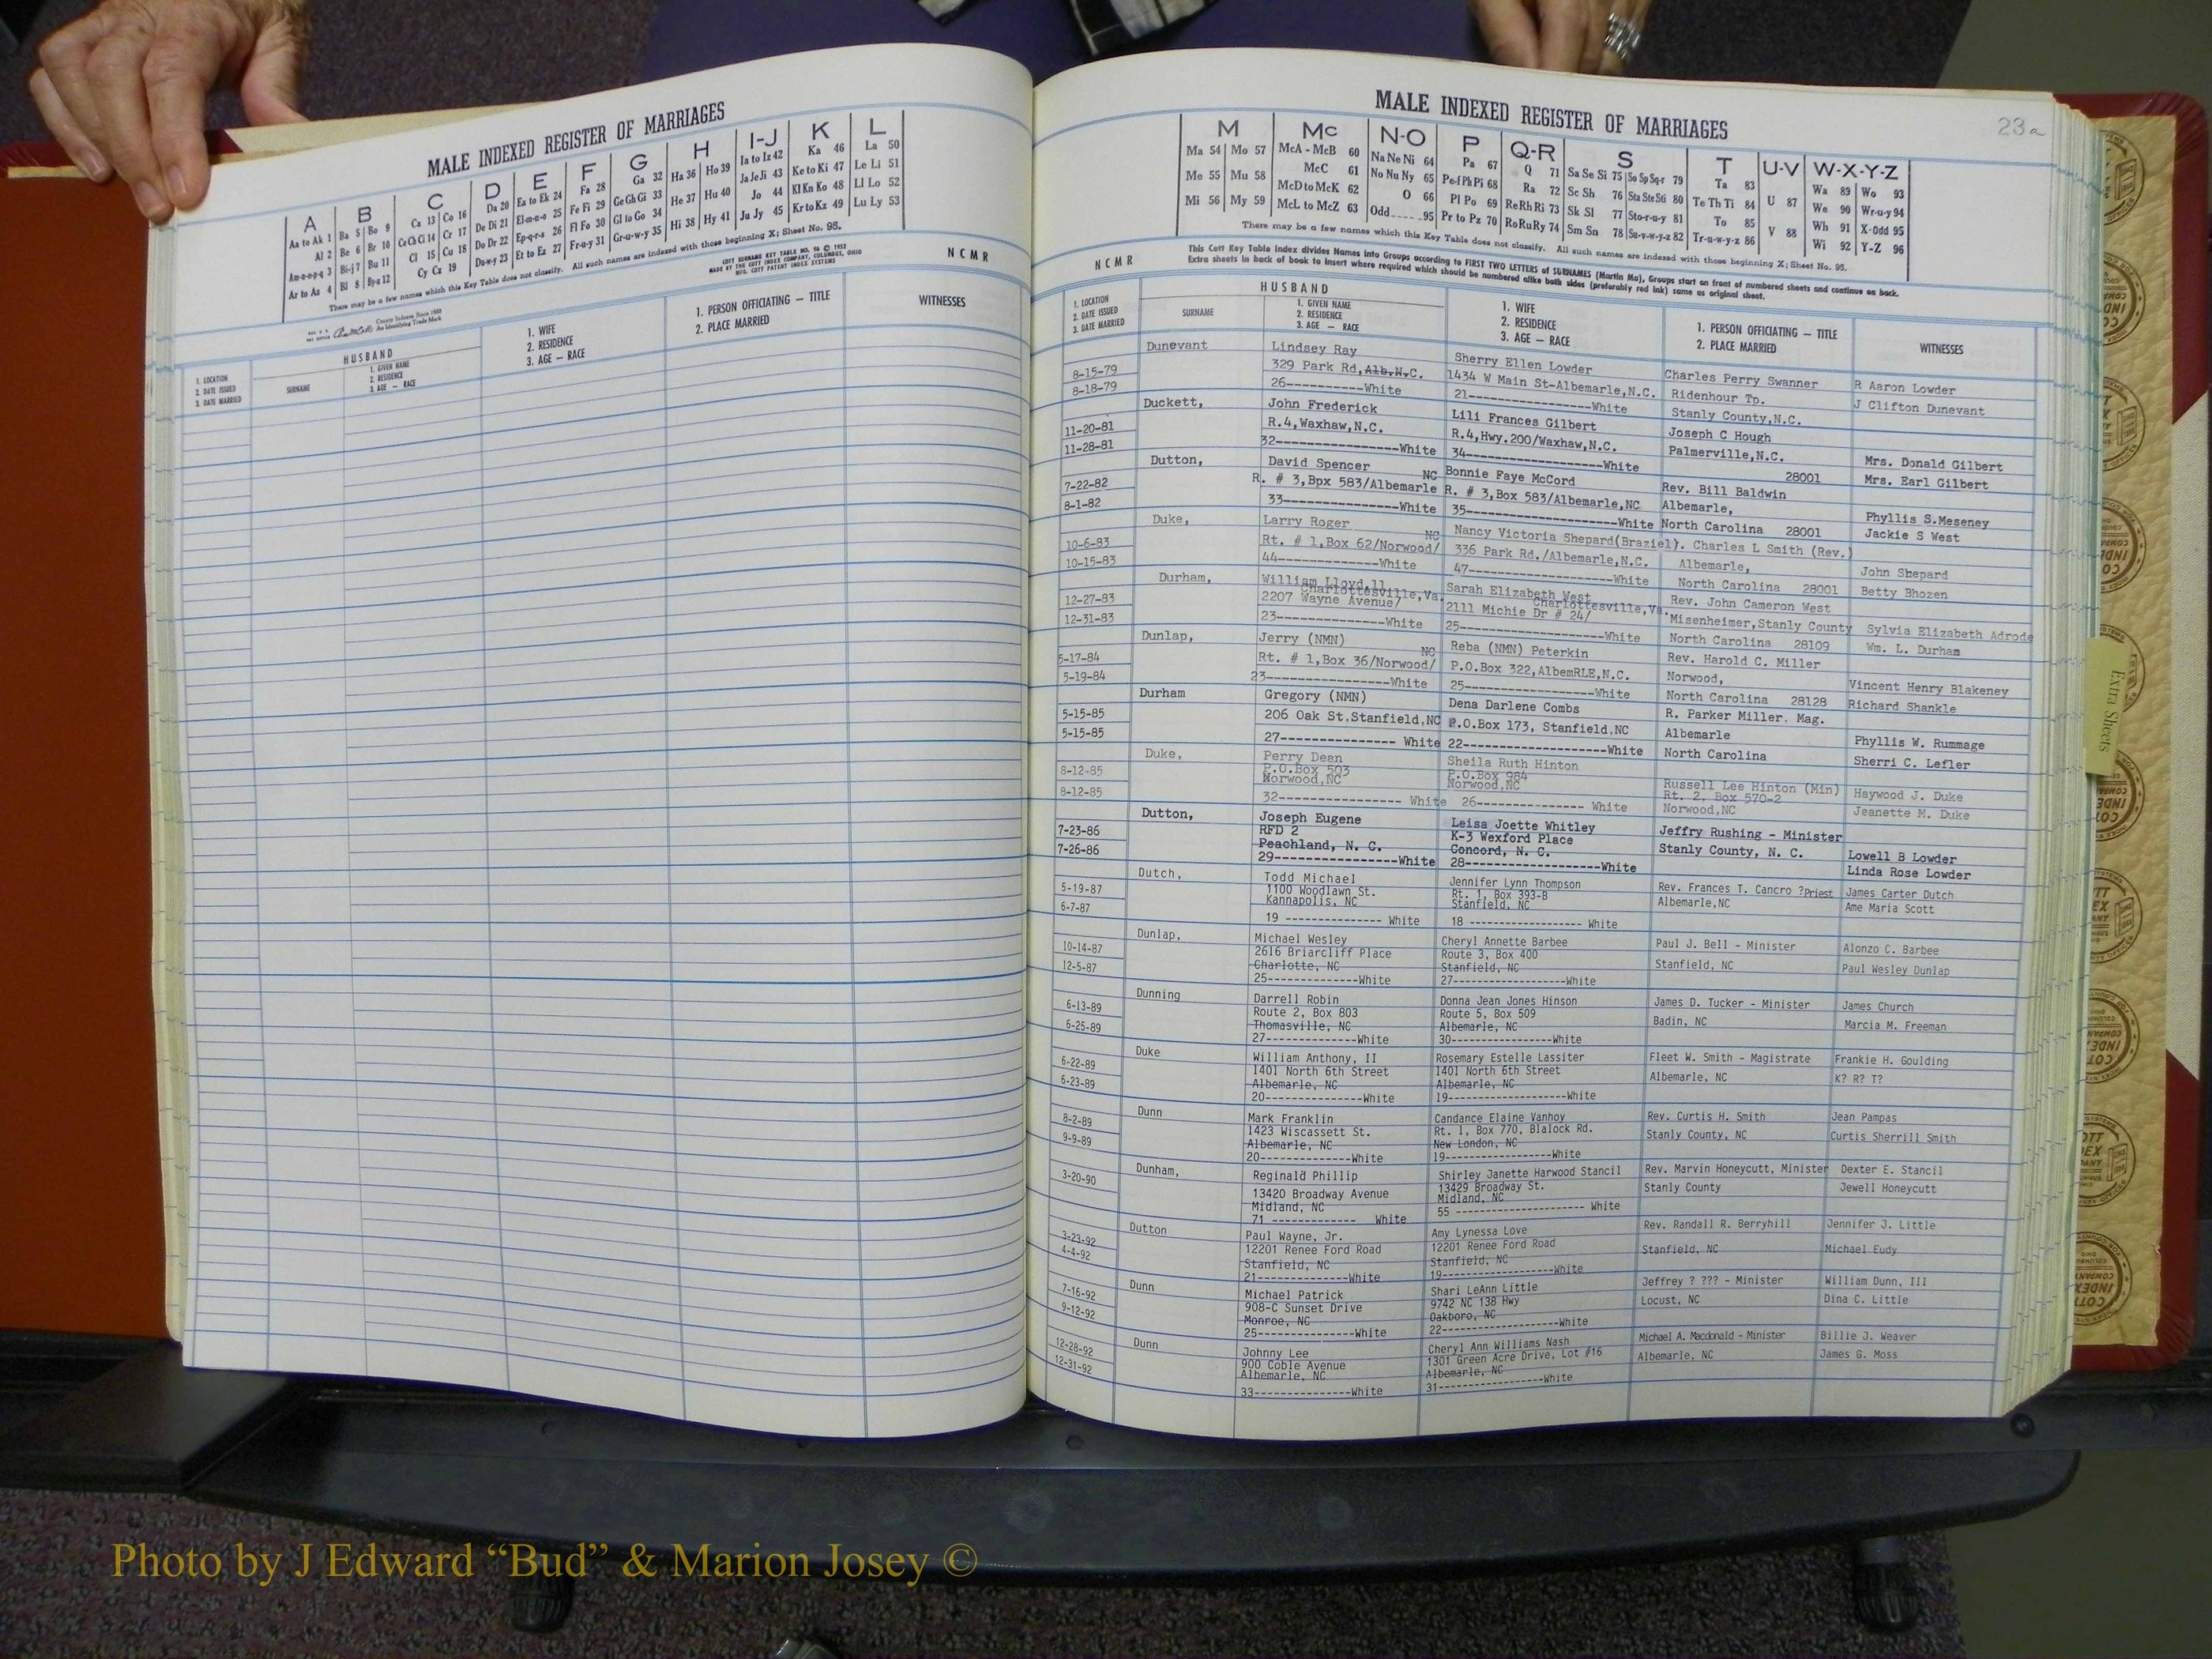 MALE INDEXED REGISTER OF MARRIAGES
A B C D E F G H I-J K L
Aa to Ak 1 Ba 5 Bo 9 Ca 13 Co 16 Da 20 Ea to Ek 24 Fa 28 Ga 32 Ha 36 Ho 39 Ia to Iz 42 Ka 46 La 50
Al 2 Be 6 Br 10 Ce Ch Ci 14 Cr 17 De Di 21 El-m-n-o 25 Fe Fi 29 Ge Gh Gi 33 He 37 Hu 40 Ja Je Ji 43 Ke to Ki 47 Le Li 51
Am-n-o-p-q 3 Bi-j 7 Bu 11 Cl 15 Cu 18 Do Dr 22 Ep-q-r-s 26 Fl Fo 30 Gl to Go 34 Hi 38 Hy 41 Jo 44 Kl Kn Ko 48 Ll Lo 52
Ar to Az 4 Bl 8 By-z 12 Cy Cz 19 Du-w-y 23 Et to Ez 27 Fr-u-y 31 Gr-u-w-y 35 Ju Jy 45 Kr to Kz 49 Lu Ly 53
There may be a few names which this Key Table does not classify. All such names are indexed with those beginning X; Sheet No. 95.
County Indexes Since 1888
An Identifying Trade Mark
COTT SURNAME KEY TABLE NO. 96 © 1952
MADE BY THE COTT INDEX COMPANY, COLUMBUS, OHIO
MFG. COTT PATENT INDEX SYSTEMS
NCMR
HUSBAND
1. LOCATION
2. DATE ISSUED
3. DATE MARRIED
SURNAME
1. GIVEN NAME
2. RESIDENCE
3. AGE — RACE
1. WIFE
2. RESIDENCE
3. AGE — RACE
1. PERSON OFFICIATING — TITLE
2. PLACE MARRIED
WITNESSES
MALE INDEXED REGISTER OF MARRIAGES
23a
M Mc N-O P Q-R S T U-V W-X-Y-Z
Ma 54 Mo 57 McA - McB 60 Na Ne Ni 64 Pa 67 Q 71 Sa Se Si 75 So Sp Sq-r 79 Ta 83 Wa 89 Wo 93
Me 55 Mu 58 McC 61 No Nu Ny 65 Pe-f Ph Pi 68 Ra 72 Sc Sh 76 Sta Ste Sti 80 Te Th Ti 84 U 87 We 90 Wr-u-y 94
Mi 56 My 59 McD to McK 62 O 66 Pl Po 69 Re Rh Ri 73 Sk Sl 77 Sto-r-u-y 81 To 85 Wh 91 X-Odd 95
McL to McZ 63 Odd 95 Pr to Pz 70 Ro Ru Ry 74 Sm Sn 78 Su-v-w-y-z 82 Tr-u-w-y-z 86 V 88 Wi 92 Y-Z 96
There may be a few names which this Key Table does not classify. All such names are indexed with those beginning X; Sheet No. 95.
This Cott Key Table Index divides Names into Groups according to FIRST TWO LETTERS of SURNAMES (Martin Ma), Groups start on front of numbered sheets and continue on back.
Extra sheets in back of book to insert where required which should be numbered alike both sides (preferably red ink) same as original sheet.
NCMR
HUSBAND
1. LOCATION
2. DATE ISSUED
3. DATE MARRIED
SURNAME
1. GIVEN NAME
2. RESIDENCE
3. AGE — RACE
1. WIFE
2. RESIDENCE
3. AGE — RACE
1. PERSON OFFICIATING — TITLE
2. PLACE MARRIED
WITNESSES
Dunevant Lindsey Ray Sherry Ellen Lowder Charles Perry Swanner R Aaron Lowder
8-15-79 329 Park Rd,Alb.N.C. 1434 W Main St-Albemarle,N.C. Ridenhour Tp. J Clifton Dunevant
8-18-79 26-----------White 21------------------White Stanly County,N.C.
Duckett, John Frederick Lili Frances Gilbert Joseph C Hough
11-20-81 R.4,Waxhaw,N.C. R.4,Hwy.200/Waxhaw,N.C. Palmerville,N.C. Mrs. Donald Gilbert
11-28-81 32----------------White 34--------------------White 28001 Mrs. Earl Gilbert
Dutton, David Spencer NC Bonnie Faye McCord Rev. Bill Baldwin
7-22-82 R. # 3,Bpx 583/Albemarle R. # 3,Box 583/Albemarle,NC Albemarle, Phyllis S.Meseney
8-1-82 33----------------White 35--------------------White North Carolina 28001 Jackie S West
Duke, Larry Roger NC Nancy Victoria Shepard(Braziel). Charles L Smith (Rev.)
10-6-83 Rt. # 1,Box 62/Norwood/ 336 Park Rd./Albemarle,N.C. Albemarle, John Shepard
10-15-83 44--------------White 47-------------------White North Carolina 28001 Betty Bhozen
Durham, William Lloyd,11 Sarah Elizabeth West Rev. John Cameron West
12-27-83 2207 Wayne Avenue/ Charlottesville,Va. 2111 Michie Dr # 24/ Charlottesville,Va. Misenheimer,Stanly County Sylvia Elizabeth Adrode
12-31-83 23---------------White 25--------------------White North Carolina 28109 Wm. L. Durham
Dunlap, Jerry (NMN) NC Reba (NMN) Peterkin Rev. Harold C. Miller
5-17-84 Rt. # 1,Box 36/Norwood/ P.O.Box 322,AlbemRLE,N.C. Norwood, Vincent Henry Blakeney
5-19-84 23-----------------White 25------------------White North Carolina 28128 Richard Shankle
Durham Gregory (NMN) Dena Darlene Combs R. Parker Miller. Mag.
5-15-85 206 Oak St.Stanfield,NC P.O.Box 173, Stanfield,NC Albemarle Phyllis W. Rummage
5-15-85 27--------------- White 22---------------------White North Carolina Sherri C. Lefler
Duke, Perry Dean Sheila Ruth Hinton
8-12-85 P.O.Box 503 P.O.Box 984 Russell Lee Hinton (Min) Haywood J. Duke
Norwood,NC Norwood,NC Rt. 2, Box 570-2
8-12-85 32---------------- White 26-------------- White Norwood,NC Jeanette M. Duke
Dutton, Joseph Eugene Leisa Joette Whitley Jeffry Rushing - Minister
7-23-86 RFD 2 K-3 Wexford Place
7-26-86 Peachland, N. C. Concord, N. C. Stanly County, N. C. Lowell B Lowder
29-----------------White 28------------------White Linda Rose Lowder
Dutch, Todd Michael Jennifer Lynn Thompson Rev. Frances T. Cancro ?Priest James Carter Dutch
5-19-87 1100 Woodlawn St. Rt. 1, Box 393-B
6-7-87 Kannapolis, NC Stanfield, NC Albemarle,NC Ame Maria Scott
19 -------------- White 18 ---------------- White
Dunlap, Michael Wesley Cheryl Annette Barbee Paul J. Bell - Minister Alonzo C. Barbee
10-14-87 2616 Briarcliff Place Route 3, Box 400
12-5-87 Charlotte, NC Stanfield, NC Stanfield, NC Paul Wesley Dunlap
25--------------White 27----------------White
Dunning Darrell Robin Donna Jean Jones Hinson James D. Tucker - Minister James Church
6-13-89 Route 2, Box 803 Route 5, Box 509
6-25-89 Thomasville, NC Albemarle, NC Badin, NC Marcia M. Freeman
27-------------White 30--------------White
Duke William Anthony, II Rosemary Estelle Lassiter Fleet W. Smith - Magistrate Frankie H. Goulding
6-22-89 1401 North 6th Street 1401 North 6th Street
6-23-89 Albemarle, NC Albemarle, NC Albemarle, NC K? R? T?
20--------------White 19-----------------White
Dunn Mark Franklin Candance Elaine Vanhoy Rev. Curtis H. Smith Jean Pampas
8-2-89 1423 Wiscassett St. Rt. 1, Box 770, Blalock Rd.
9-9-89 Albemarle, NC New London, NC Stanly County, NC Curtis Sherrill Smith
20-------------White 19---------------White
Dunham, Reginald Phillip Shirley Janette Harwood Stancil Rev. Marvin Honeycutt, Minister Dexter E. Stancil
3-20-90 13420 Broadway Avenue 13429 Broadway St. Stanly County Jewell Honeycutt
Midland, NC Midland, NC
71 ------------ White 55 ------------------- White
Dutton Paul Wayne, Jr. Amy Lynessa Love Rev. Randall R. Berryhill Jennifer J. Little
3-23-92 12201 Renee Ford Road 12201 Renee Ford Road
4-4-92 Stanfield, NC Stanfield, NC Stanfield, NC Michael Eudy
21-------------White 19----------------White
Dunn Michael Patrick Shari LeAnn Little Jeffrey ? ??? - Minister William Dunn, III
7-16-92 908-C Sunset Drive 9742 NC 138 Hwy
9-12-92 Monroe, NC Oakboro, NC Locust, NC Dina C. Little
25--------------White 22-----------------White
Dunn Johnny Lee Cheryl Ann Williams Nash Michael A. Macdonald - Minister Billie J. Weaver
12-28-92 900 Coble Avenue 1301 Green Acre Drive, Lot #16
12-31-92 Albemarle, NC Albemarle, NC Albemarle, NC James G. Moss
33--------------White 31---------------White
Extra Sheets
Photo by J Edward “Bud” & Marion Josey ©